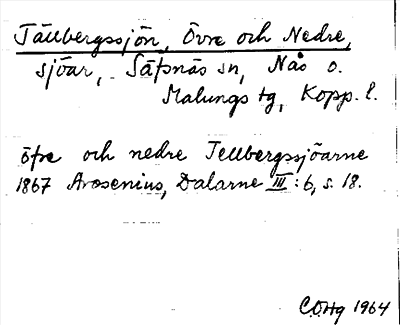 Tällbergssjön, Övre och Nedre,
sjöar, Säfsnäs sn, Nås o.
Malungs tg, Kopp. l.
öfre och nedre Tellbergssjöarne
1867 Arosenius, Dalarne III:6, s. 18.
C.O.Hg 1964